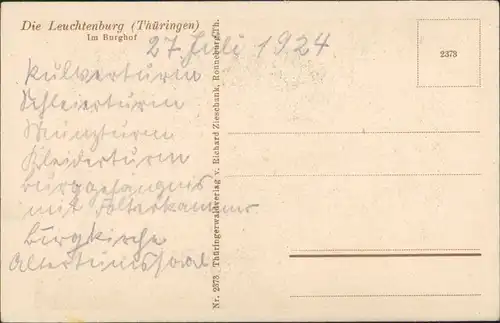 Die Leuchtenburg (Thüringen)
Im Burghof
27 Juli 1924
2373
Pulverturm
Schleierturm
Münzturm
Kleiderturm
Burggefängnis
mit Folterkammer
Burgkirche
Altertumssaal
Nr. 2373 Thüringerwaldverlag v. Richard Zieschank, Ronneburg, Th.